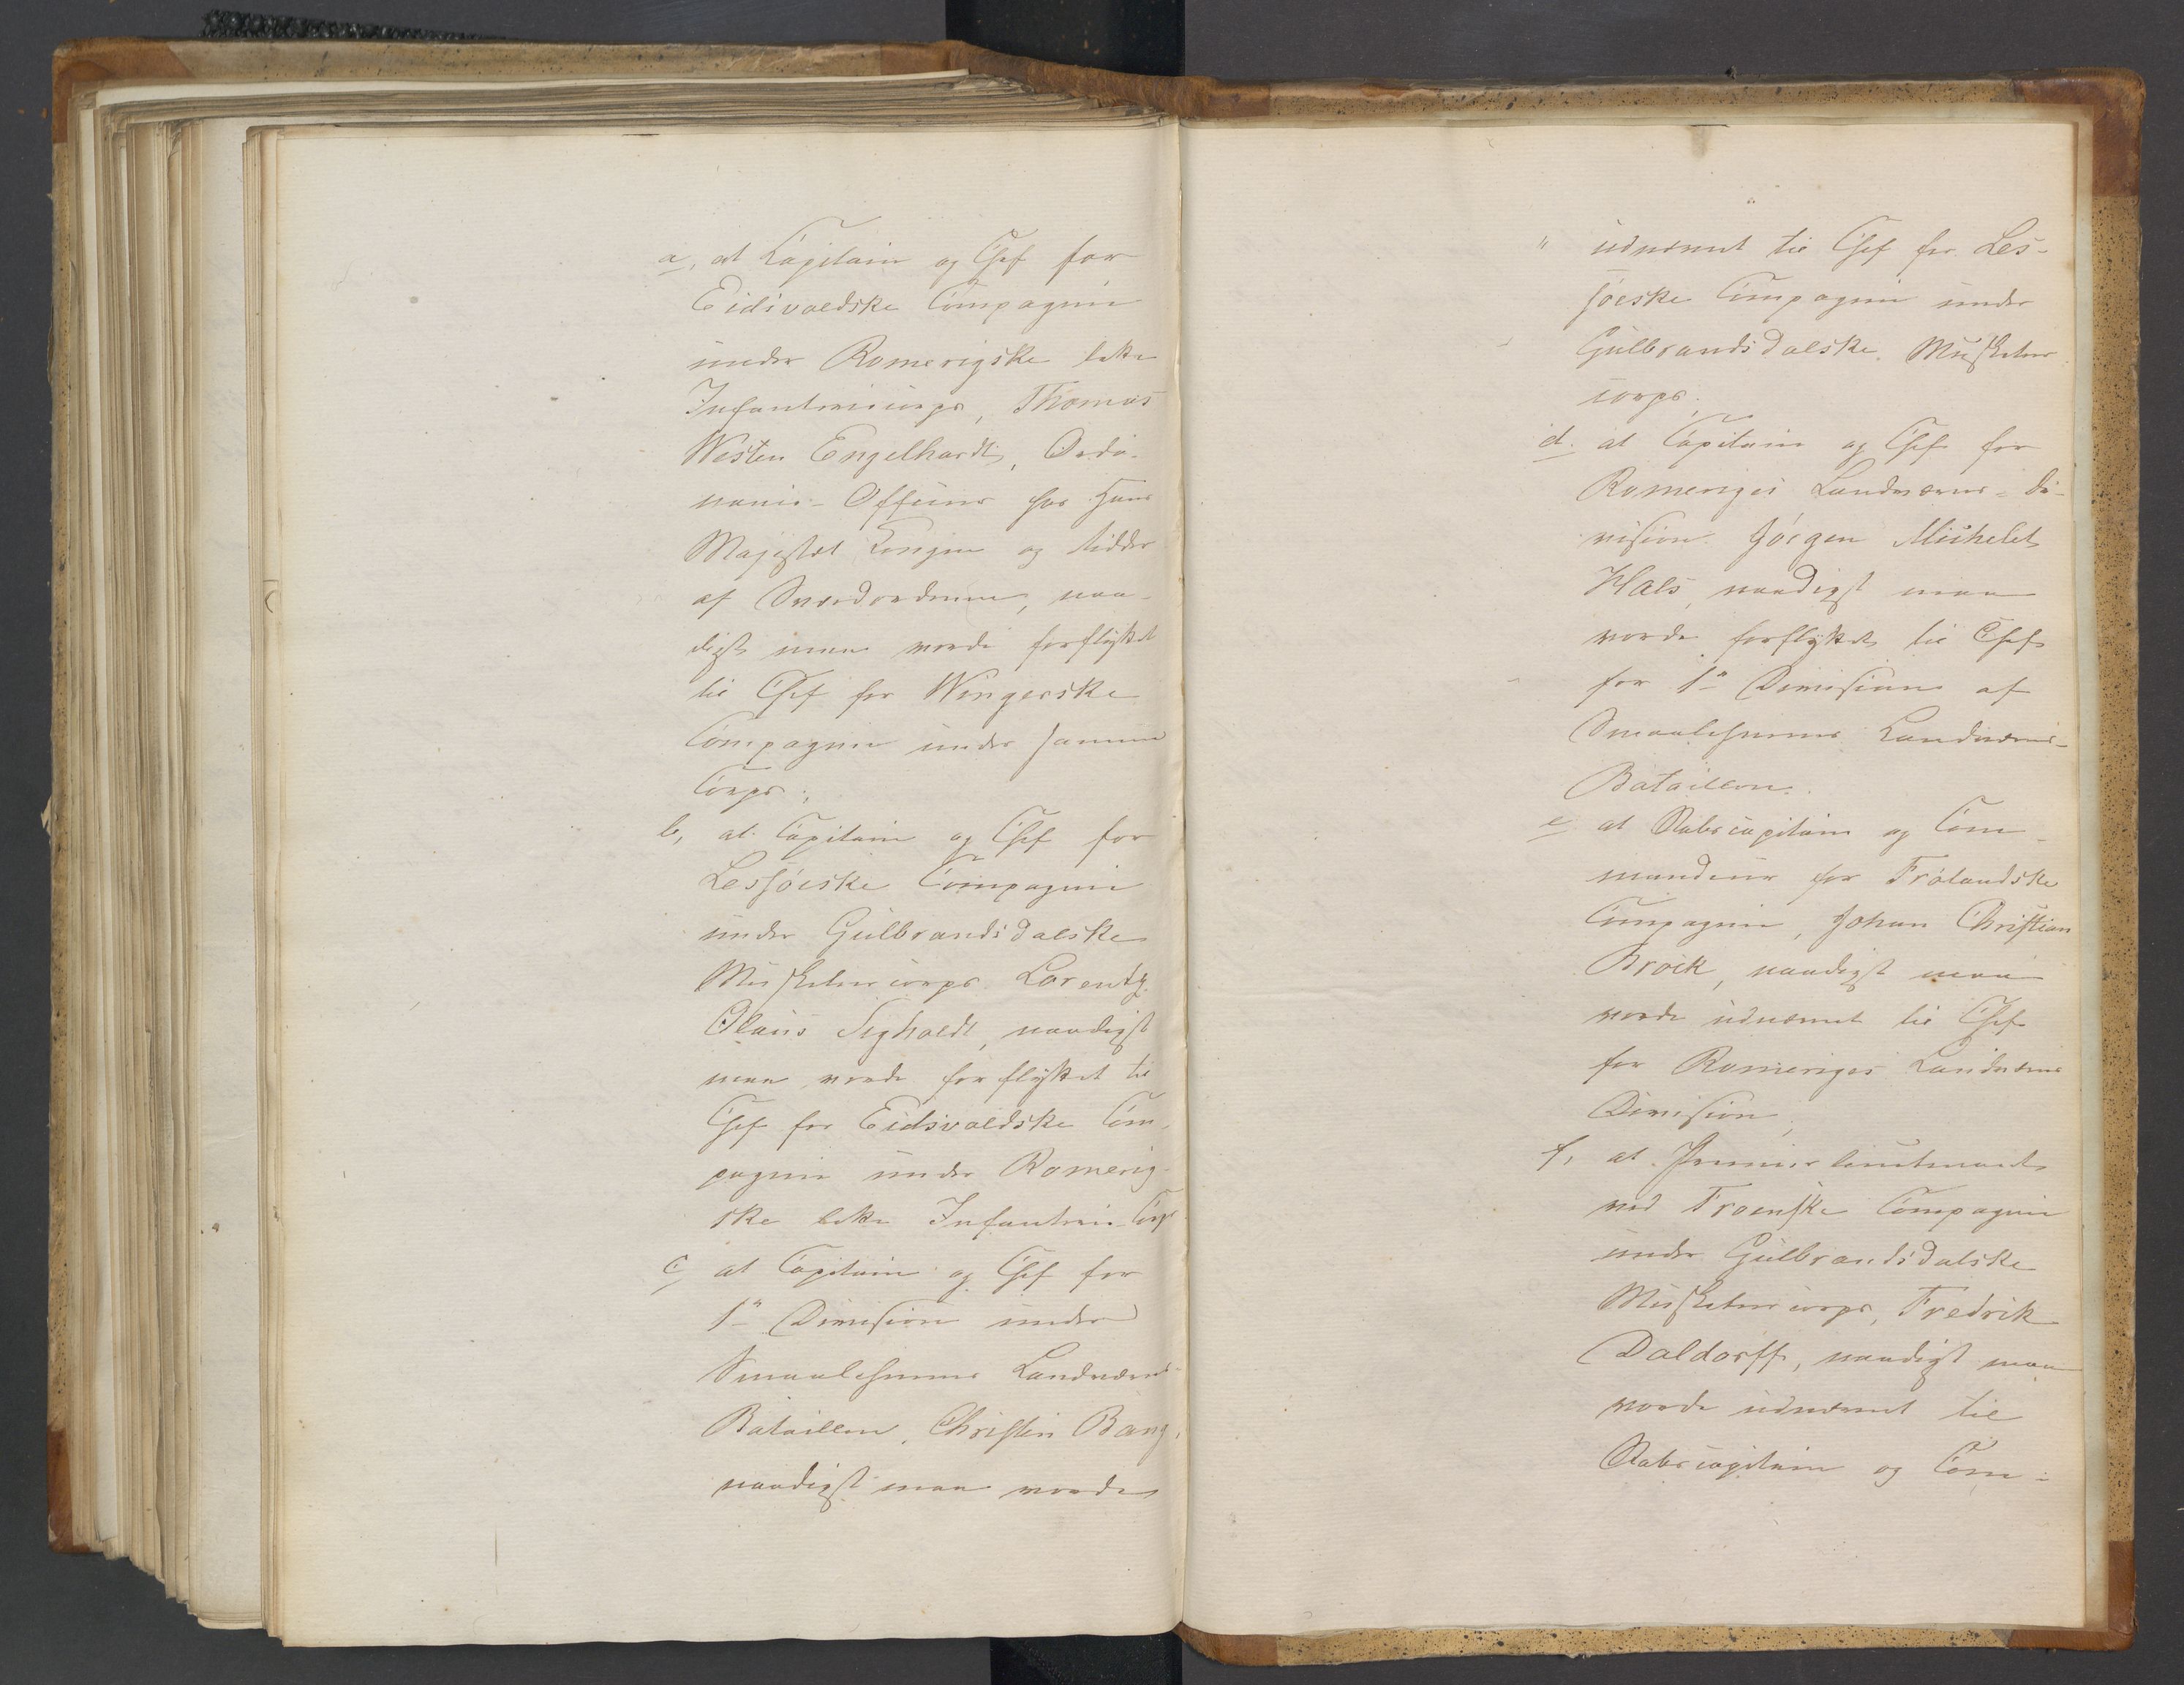 a, at Capitain og Chef for
Eidsvoldske Compagnie
under Romerigske lette
Infantericorps, Thomas
Westen Engelhardt, Ordo-
nanis-Officier hos Hans
Majestæt Kongen og Ridder
af Sværdordenen, naa-
digst maa vorde forflyttet
til Chef for Wingerske
Compagnie under samme
Corps;
b, at Capitain og Chef for
Lessøeske Compagnie
under Gulbrandsdalske
Musketeercorps Lorentz
Olaus Sigholdt, naadigst
maa vorde forflyttet til
Chef for Eidsvoldske Com-
pagnie under Romerig-
ske lette Infanterie Corps
c, at Capitain og Chef for
1ste Division under
Smaalehnenes Landværns-
Bataillon, Christin Bang,
naadigst maa vorde
" udnævnt til Chef for Les-
søeske Compagnie under
Gulbrandsdalske Musketeer
corps;
d. at Capitain og Chef for
Romeriges Landværns-Di-
vision Jørgen Michelet
Hals, naadigst maa
vorde forflyttet til Chef
for 1ste Division af
Smaalehnenes Landværns-
Bataillon.
e at Stabscapitain og Com-
mandeur for Frølandske
Compagnie, Johan Christian
Brock, naadigst maa
vorde udnævnt til Chef
for Romeriges Landværns
Division;
f, at Premierlieutenant
ved Froenske Compagnie
under Gulbrandsdalske
Musketeercorps, Fredrik
Daldorff, naadigst maa
vorde udnævnt til
Stabscapitain og Com-